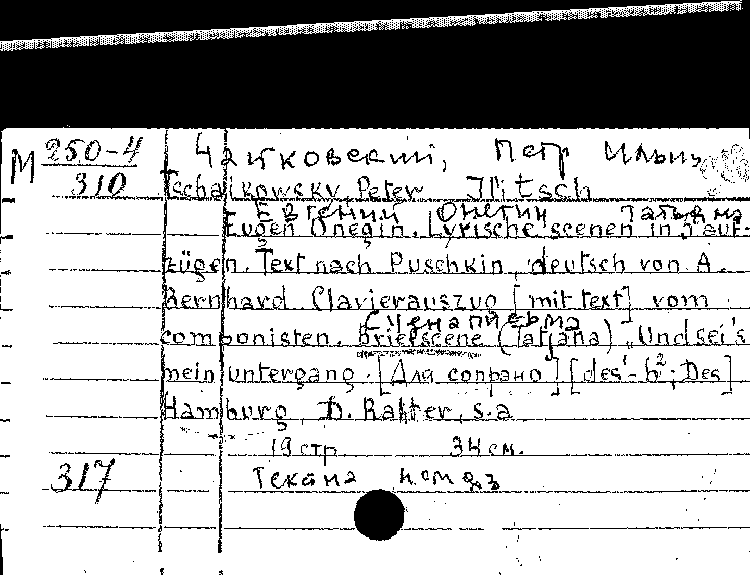 М 250-4 Чайковский, Петр Ильич
310 Tschaikowsky, Peter Iljitsch
Евгений Онегин. Татьяна
Eugen Onegin. Lyrische scenen in 3 auf-
zügen. Text nach Puschkin, deutsch von A.
Bernhard Clavierauszug [mit text] vom
Сцена письма
componisten. Briefscene (Tatjana) „Und sei's
mein untergang. [Для сопрано] [des¹-b²; Des]
Hamburg, D. Rahter, s.a
19 стр. 34 см.
317 Текст на нем. яз